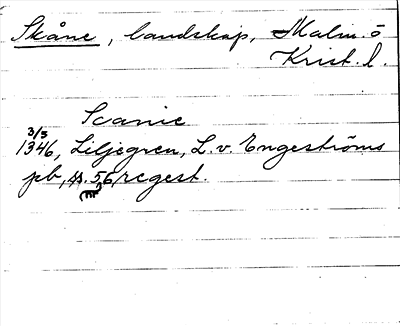 Skåne, landskap, Malm. o
Krist. l.
Scanie
3/3
1346, Liljegren, L. v. Engeströms
pb, 56, regest.